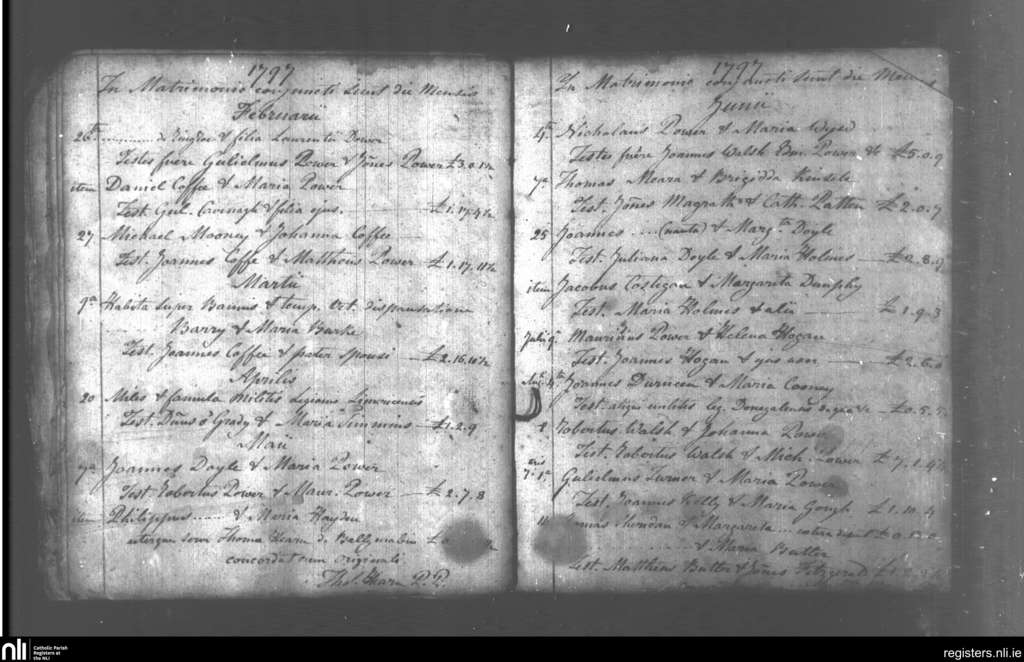 1797
In Matrimonio conjuncti sunt die Mensis
Februarii
26 de & filia Laurentii Power
Testes fuere Gulielmus Power & Jões Power £3.0.1½
item Daniel Coffee & Maria Power
Test. Gul. Cavenagh & filia ejus. £1.17.4½
27 Michael Mooney & Johanna Coffee
Test. Joannes Coffe & Mattheus Power £1.17.11½
Martii
9ª Habita super Bannis & temp. vet. dispensatione
Barry & Maria Burke
Test. Joannes Coffee & pater sponsi £2.16.10½
Aprilis
20 Miles & famula militis Legionis Limericensis
Test. Dãus O'Grady & Maria Timmins £1.2.9
Maii
7ª Joannes Doyle & Maria Power
Test. Robertus Power & Maur. Power £2.7.8
item Philippus & Maria Hayden
uterque Thoma Hearn de Ballymabin £0
concordat cum originali
Thos. Hearn P.P.
1797
In Matrimonio conjuncti sunt die Mensis
Junii
4ª Nicholaus Power & Maria
Testes fuere Joannes Walsh Power &c £5.0.9
7ª Thomas Meara & Brigidda
Test. Jões Magrath & Cath. Patten £2.0.7
25 Joannes (nauta) & Marg.ta Doyle
Test. Juliana Doyle & Maria Holmes £2.8.9
item Jacobus Costigan & Margarita Dunphy
Test. Maria Holmes & alii £1.9.3
Julii 9ª Mauritius Power & Helena Hogan
Test. Joannes Hogan & ejus uxor £2.6.
4ª Joannes & Maria Cooney
Test. aliqui milites leg. Donegalensis &c £0.5.5
Robertus Walsh & Johanna Power
Test. Robertus Walsh & Mich. Power £7.1.4½
7. 1ª Gulielmus Turner & Maria Power
Test. Joannes Kelly & Maria Gough £1.10.4
Sheridan & Margarita £0
& Maria Butler
Test. Matthias Butler & Jões Fitzgerald
nli
Catholic Parish
Registers at
the NLI
registers.nli.ie